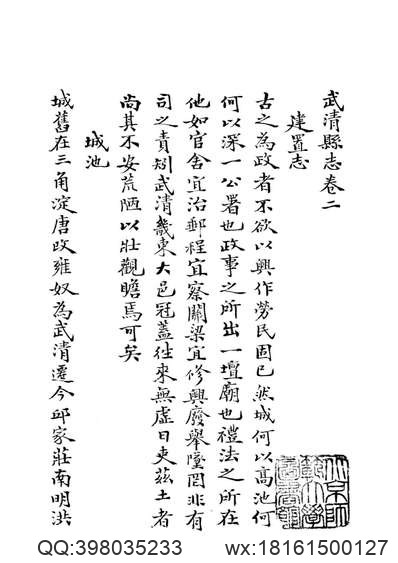 武清縣志卷二
建置志
古之為政者不欲以興作勞民固已然城何以高池何
何以深一公署也政事之所出一壇廟也禮法之所在
他如官舍宜治郵程宜察關梁宜修興廢舉墜罔非有
司之責矧武清畿東大邑冠蓋往來無虛日吏茲土者
尚其不安荒陋以壯觀瞻焉可矣
城池
城舊在三角淀唐改雍奴為武清遷今邱家莊南明洪
QQ:398035233
wx:18161500127